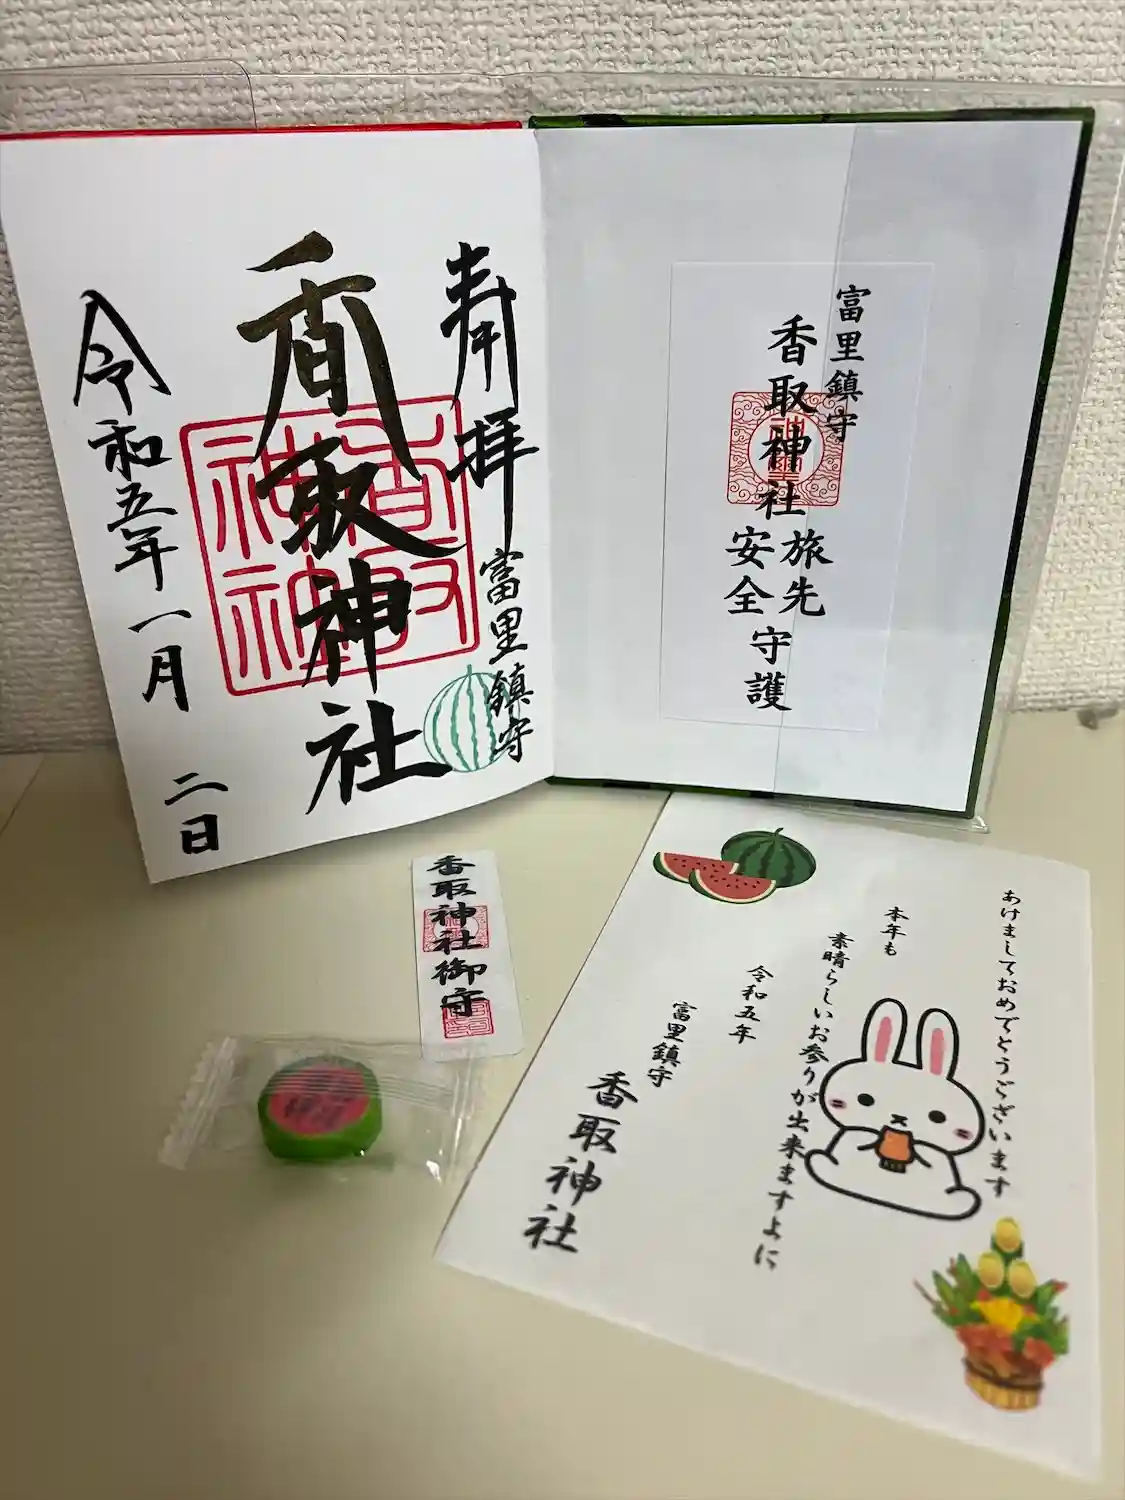 奉拝
富里鎮守
香取神社
令和五年一月二日
富里鎮守
香取神社
旅先
安全
守護
香取神社御守
あけましておめでとうございます
本年も
素晴らしいお参りが出来ますよに
令和五年
富里鎮守
香取神社